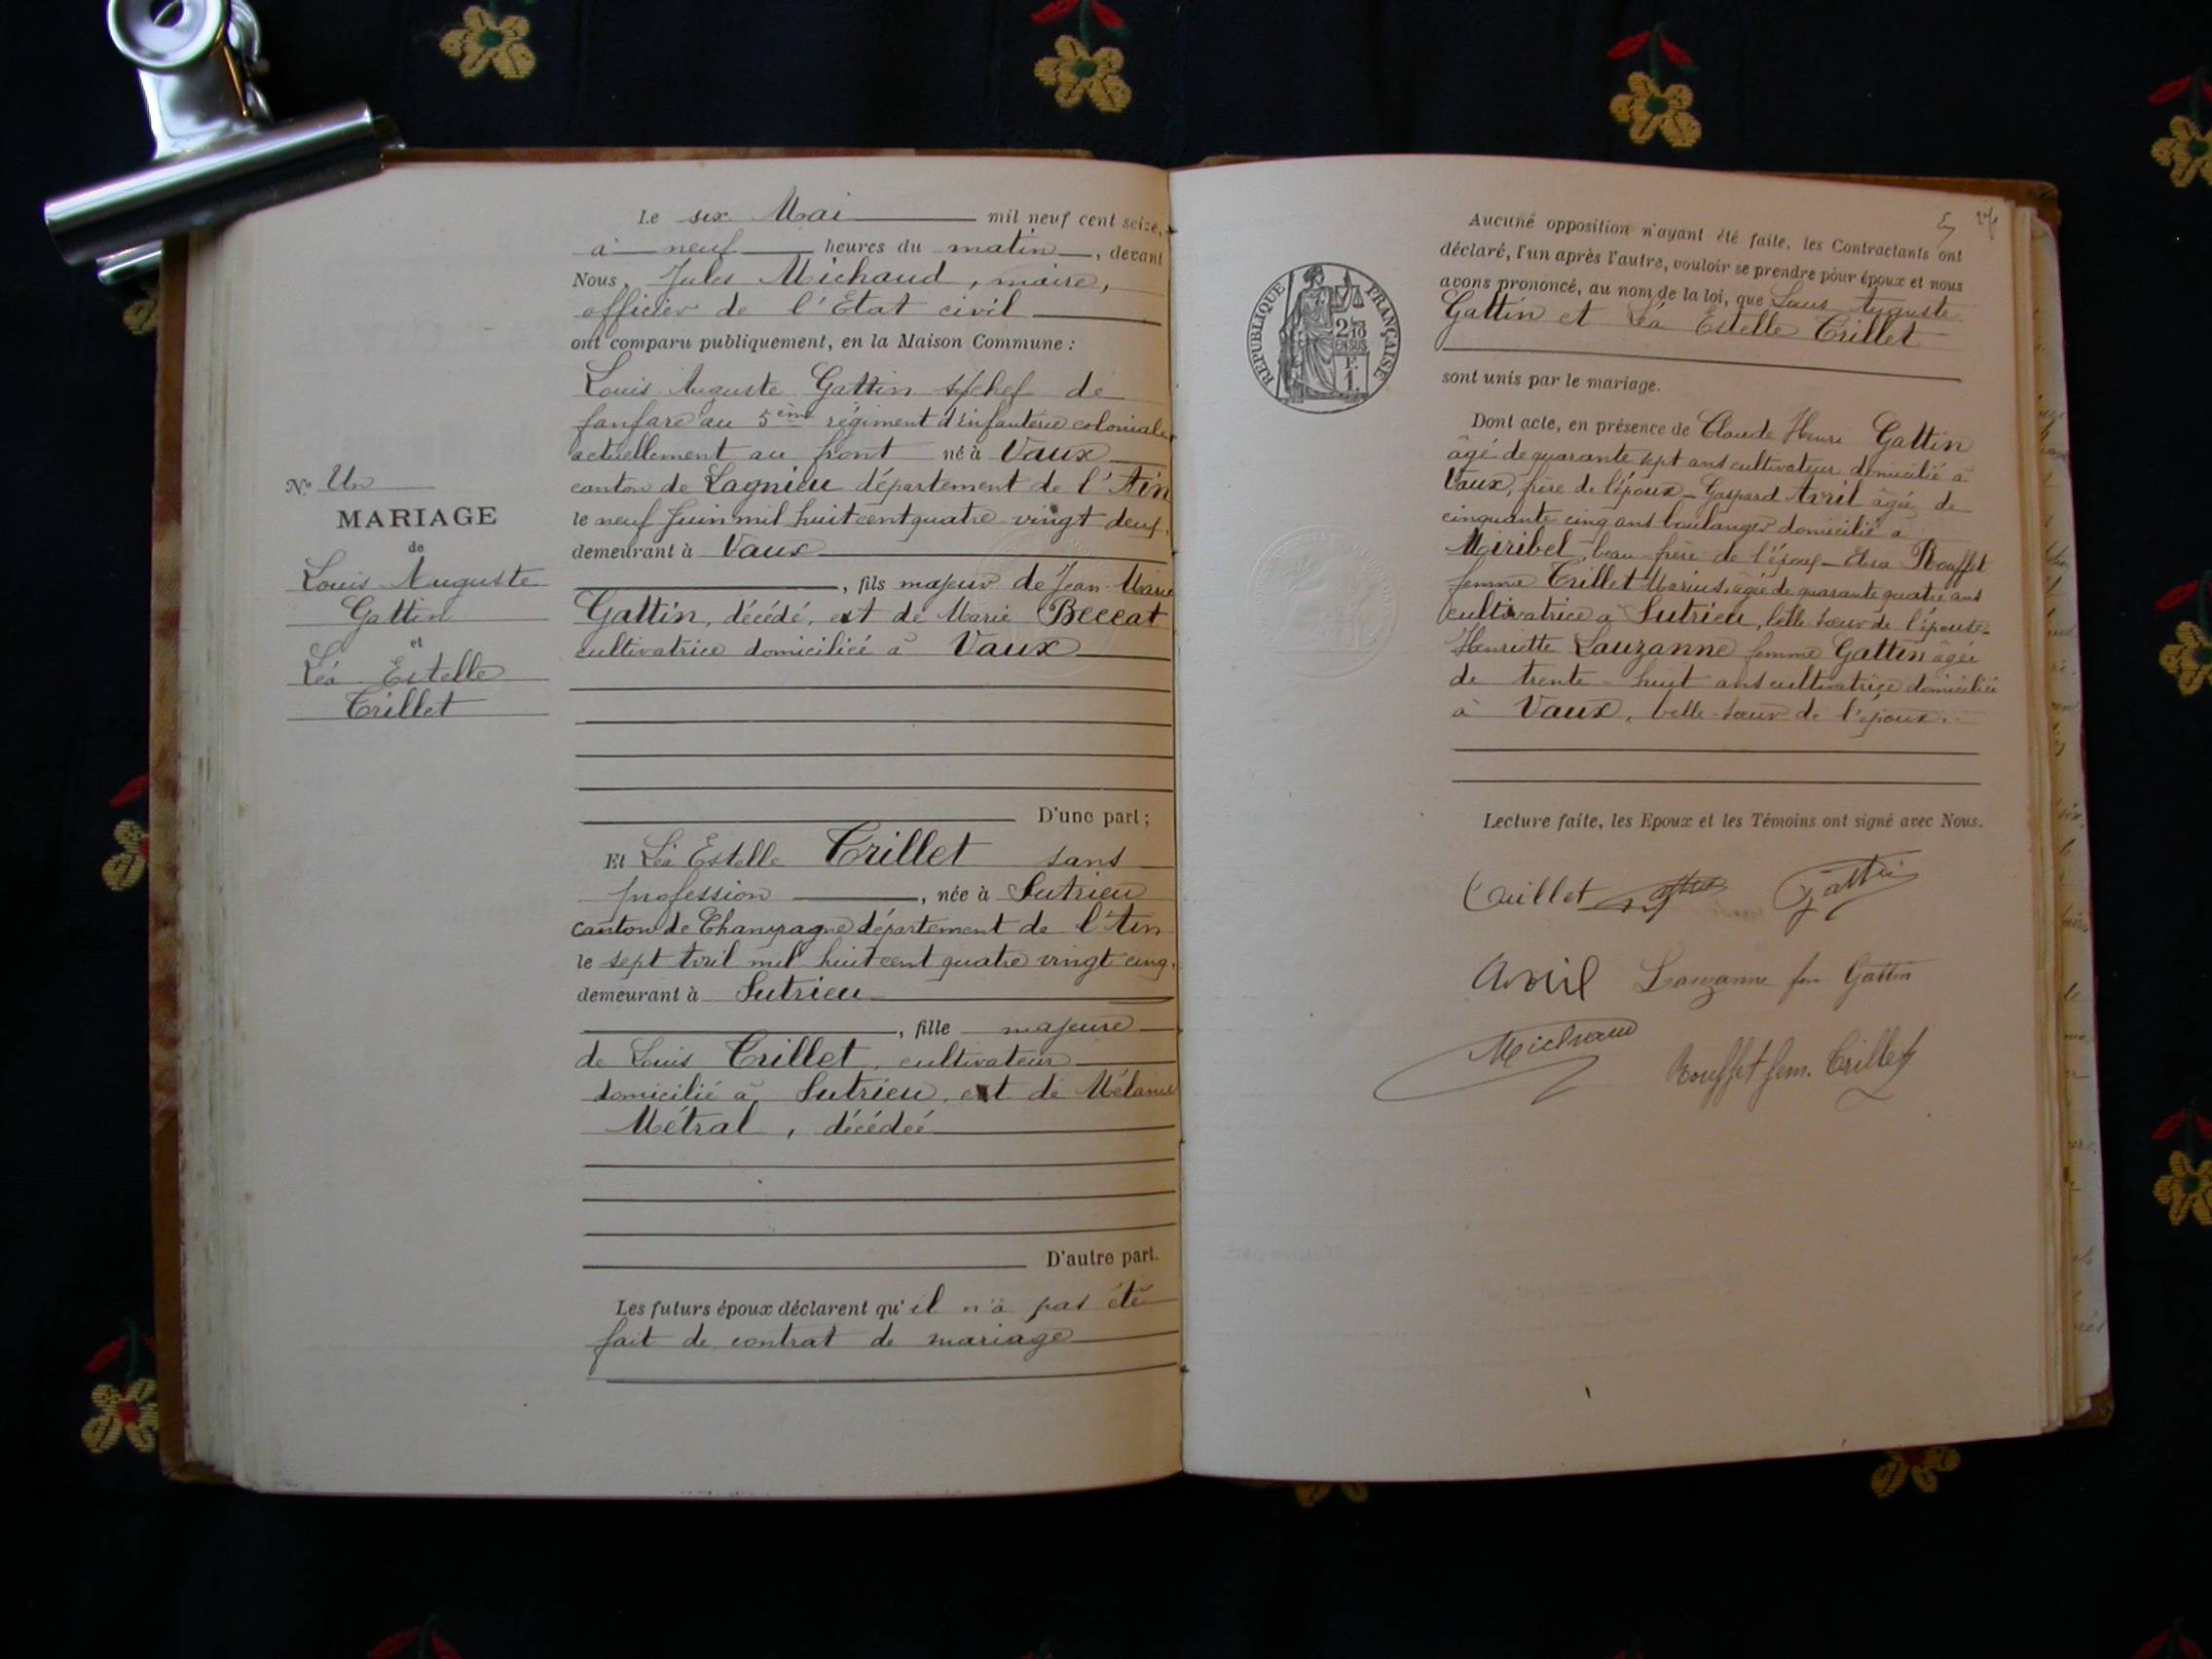 Le six Mai mil neuf cent seize,
à neuf heures du matin, devant
Nous, Jules Michaud, maire,
officier de l'Etat civil
ont comparu publiquement, en la Maison Commune :
Louis Auguste Gattin s/chef de
fanfare au 5ème régiment d'infanterie coloniale
actuellement au front né à Vaux
canton de Lagnieu département de l'Ain
le neuf Juin mil huit cent quatre vingt deux,
demeurant à Vaux
, fils majeur de Jean-Marie
Gattin, décédé, et de Marie Beccat
cultivatrice domiciliée à Vaux
D'une part ;
Et Léa Estelle Trillet sans
profession, née à Sutrieu
canton de Champagne département de l'Ain
le sept Avril mil huit cent quatre vingt cinq,
demeurant à Sutrieu
, fille majeure
de Louis Trillet, cultivateur
domicilié à Sutrieu, et de Mélanie
Métral, décédée
D'autre part.
Les futurs époux déclarent qu'il n'a pas été
fait de contrat de mariage
No Un
MARIAGE
de
Louis Auguste
Gattin
et
Léa Estelle
Trillet
Aucune opposition n'ayant été faite, les Contractants ont
déclaré, l'un après l'autre, vouloir se prendre pour époux et nous
avons prononcé, au nom de la loi, que Louis Auguste
Gattin et Léa Estelle Trillet
sont unis par le mariage.
Dont acte, en présence de Claude Henri Gattin
âgé de quarante sept ans cultivateur domicilié à
Vaux, frère de l'époux - Gaspard Avril âgé de
cinquante cinq ans boulanger domicilié à
Miribel, beau-frère de l'époux - Elisa Rouffet
femme Trillet Marius, âgée de quarante quatre ans
cultivatrice à Sutrieu, belle sœur de l'épouse -
Henriette Lauzanne femme Gattin âgée
de trente-huit ans cultivatrice domiciliée
à Vaux, belle-sœur de l'époux.
Lecture faite, les Epoux et les Témoins ont signé avec Nous.
Trillet Gattin
Avril Lauzanne fem Gattin
Michaud
Rouffet fem. Trillet
REPUBLIQUE FRANÇAISE
2/10
EN SUS
F.
1.